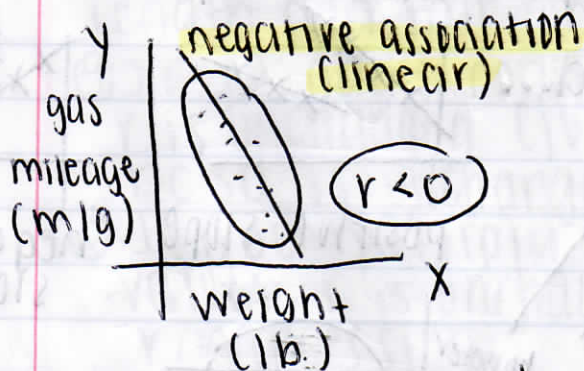 Y
negative association
(linear)
gas
mileage
(m/g)
r < 0
X
weight
(lb.)